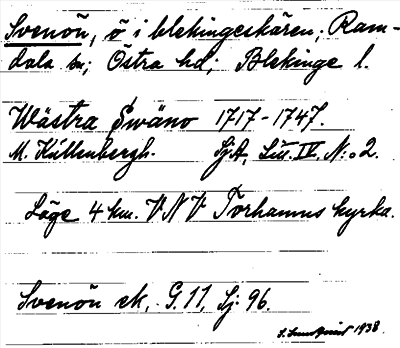 Svenön, ö i blekingeskären; Ram-
dala sn; Östra hd; Blekinge l.
Wästra Swäno 1717-1747.
M. Kullenbergh. SjA, Lin. IV. N:o 2.
Läge 4 km. VNV Torhamns kyrka.
Svenön ek, G.11, Sj: 96.
1938